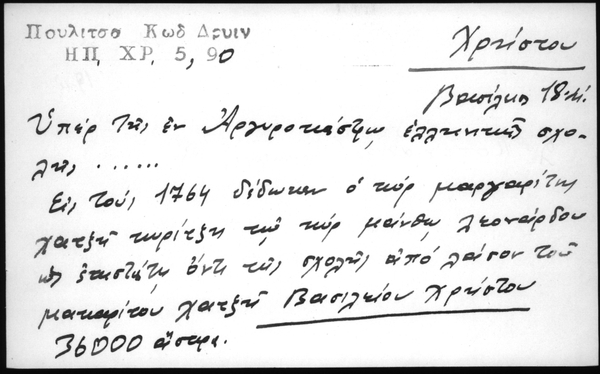 Πουλιτσα Κωδ Δρυιν
ΗΠ, ΧΡ. 5, 90
Χρήστου
Βασίλειος 18
Ὑπέρ τῆς ἐν Ἀργυροκάστρῳ ἑλληνικῆς σχο-
λῆς ......
Εἰς τούς 1764 δίδωκεν ὁ κύρ μαργαρίτης
χατζῆ κυρίτζη τῷ κύρ μάνθῳ λεονάρδου
ὡς ἐπιστάτῃ ὄντι τῆς σχολῆς ἀπό λάσον τοῦ
μακαρίτου χατζῆ Βασιλείου Χρήστου
36000 ἄσπρα.